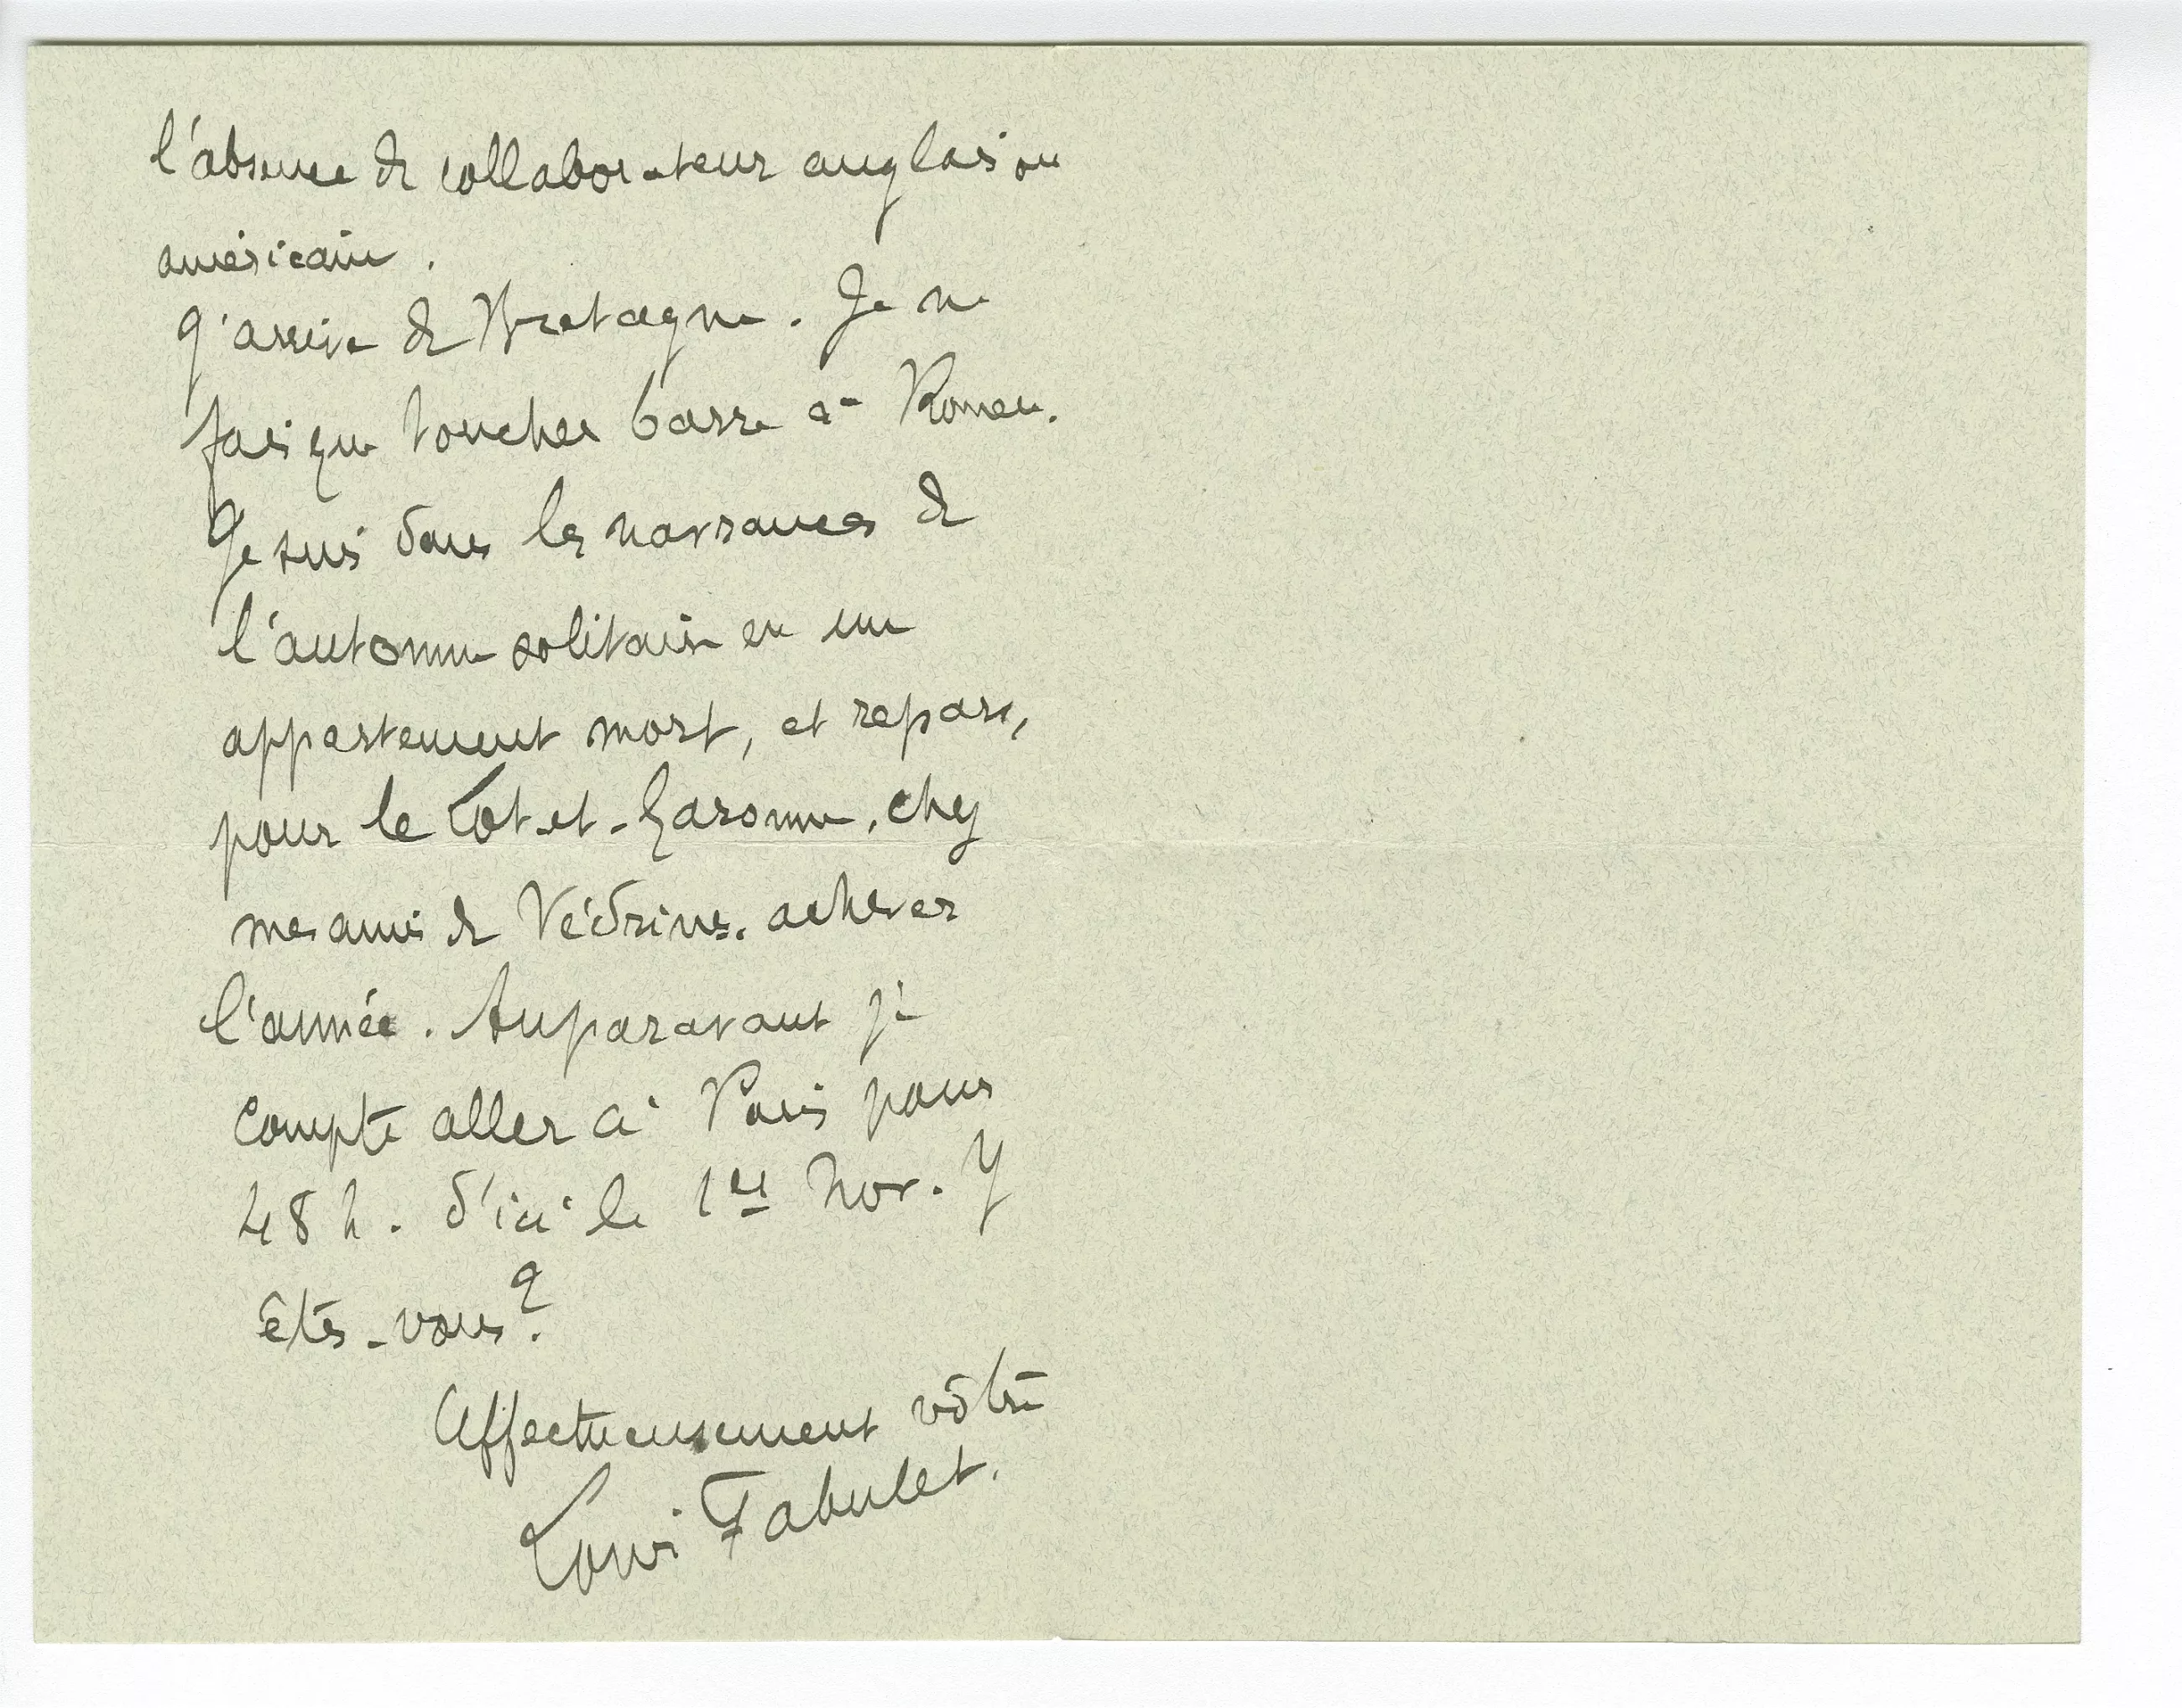 l'absence de collaborateur anglais ou
américain.
J'arrive de Bretagne. Je ne
fais que toucher barre à Rouen.
Je suis dans les navrances de
l'automne solitaire en un
appartement mort, et repars,
pour le Lot-et-Garonne, chez
mes amis de Védrines, achever
l'année. Auparavant je
compte aller à Paris pour
48 h. d'ici le 1er Nov. Y
êtes-vous?
Affectueusement vôtre
Louis Fabulet.